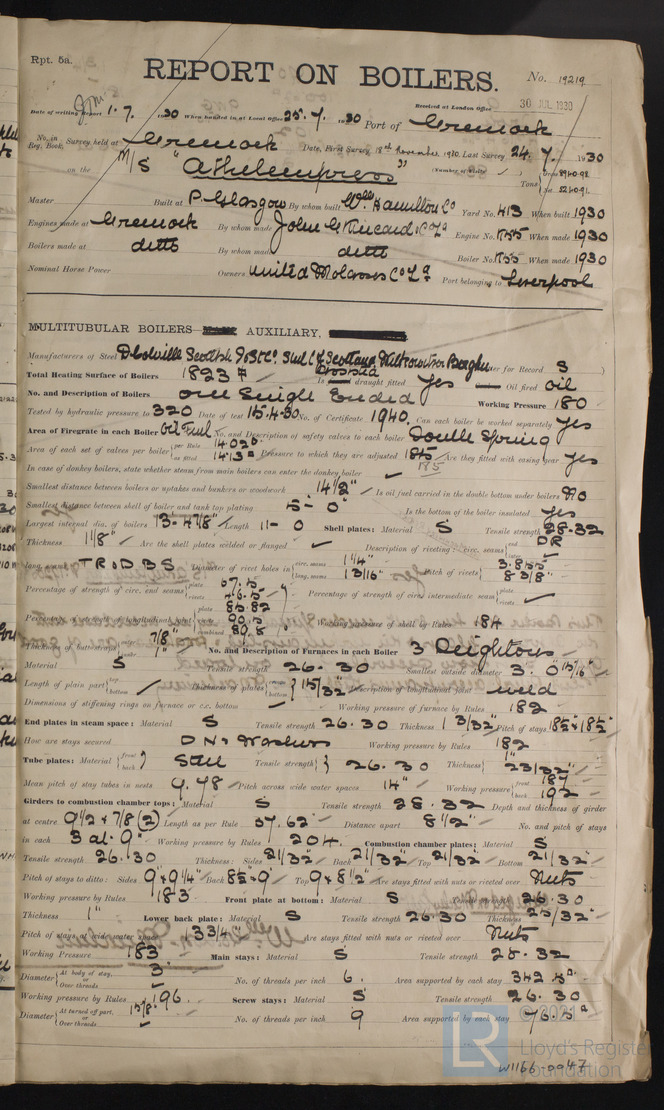 Rpt. 5a.
REPORT ON BOILERS.
No. 19219
Received at London Office 30 JUL 1930
Date of writing Report 1.7.1930 When handed in at Local Office 25.7.1930 Port of Greenock
No. in Reg. Book. Survey held at Greenock Date, First Survey 18th November 1930. Last Survey 24.7.1930
on the M/S "Athelempress" (Number of Visits ) Tons
Master Built at P. Glasgow By whom built Wm Hamilton Co Yard No. 413 When built 1930
Engines made at Greenock By whom made John G Kincaid & Co Ld Engine No. When made 1930
Boilers made at ditto By whom made ditto Boiler No. When made 1930
Nominal Horse Power Owners United Molasses Co Ld Port belonging to Liverpool
MULTITUBULAR BOILERS AUXILIARY.
Manufacturers of Steel for Record S
Total Heating Surface of Boilers 1823 Is draught fitted Yes Oil fired oil
No. and Description of Boilers one Single Ended Working Pressure 180
Tested by hydraulic pressure to 320 Date of test 15.4.30 No. of Certificate 1940 Can each boiler be worked separately Yes
Area of Firegrate in each Boiler Oil Fuel No. and Description of safety valves to each boiler Double Spring
Area of each set of valves per boiler per Rule as fitted Pressure to which they are adjusted 185 Are they fitted with easing gear Yes
In case of donkey boilers, state whether steam from main boilers can enter the donkey boiler
Smallest distance between boilers or uptakes and bunkers or woodwork 14½" Is oil fuel carried in the double bottom under boilers No
Smallest distance between shell of boiler and tank top plating 5-0" Is the bottom of the boiler insulated Yes
Largest internal dia. of boilers 13-4⅞" Length 11-0 Shell plates: Material S Tensile strength 28.32
Thickness 1⅛" Are the shell plates welded or flanged Description of riveting: circ. seams DR
long. seams TR.D.B.S Diameter of rivet holes in circ. seams 1¼" long. seams 1 3/16" Pitch of rivets 8⅜"
Percentage of strength of circ. end seams plate rivets Percentage of strength of circ. intermediate seam plate rivets
Percentage of strength of longitudinal joint plate 85.82 rivets combined Working pressure of shell by Rules 184
Thickness of butt straps 7/8" 1" No. and Description of Furnaces in each Boiler 3 Deightons
Material S Tensile strength 26.30 Smallest outside diameter 3. 0 15/16"
Length of plain part top bottom Thickness of plates 15/32" Description of longitudinal joint weld
Dimensions of stiffening rings on furnace or c.c. bottom Working pressure of furnace by Rules 182
End plates in steam space: Material S Tensile strength 26.30 Thickness 1 3/32" Pitch of stays 18½ × 18½
How are stays secured D N & Washers Working pressure by Rules 182
Tube plates: Material front back Steel Tensile strength 26.30 Thickness 23/32"
Mean pitch of stay tubes in nests 9.78 Pitch across wide water spaces 14" Working pressure front 187 back 192
Girders to combustion chamber tops: Material S Tensile strength 28.32 Depth and thickness of girder
at centre 9½ × 7/8 (2) Length as per Rule 37.62 Distance apart 8½" No. and pitch of stays
in each 3 at 9" Working pressure by Rules 204. Combustion chamber plates: Material S
Tensile strength 26.30 Thickness: Sides 21/32" Back 21/32" Top 21/32" Bottom 21/32"
Pitch of stays to ditto: Sides 9" × 9¼" Back 8½ × 9" Top 9 × 8½" Are stays fitted with nuts or riveted over Nuts
Working pressure by Rules 183 Front plate at bottom: Material S Tensile strength 26.30
Thickness 1" Lower back plate: Material S Tensile strength 26.30 Thickness 25/32"
Pitch of stays at wide water space Are stays fitted with nuts or riveted over Nuts
Working Pressure 183 Main stays: Material S Tensile strength 28.32
Diameter At body of stay, or Over threads 3" No. of threads per inch 6. Area supported by each stay
Working pressure by Rules 196. Screw stays: Material S Tensile strength 26.30
Diameter At turned off part, or Over threads 1 5/8" No. of threads per inch 9 Area supported by each stay
© 2021
LR
Lloyd's Register
Foundation
W1166-0047